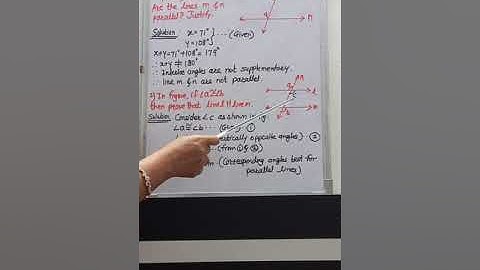 Are the lines m & n
parallel? Justify.
m
n
Solution x = 71° } ... (Given)
y = 108° }
x+y = 71°+108° = 179°
∴ x+y ≠ 180°
∴ Interior angles are not supplementary.
∴ line m & n are not parallel.
2) In figure, if ∠a≅∠b
then prove that line l || line m.
n
a
l
c
m
Solution Consider ∠c as shown in fig
∠a≅∠b ... (Given) ①
(vertically opposite angles) ②
(from ① & ②)
(Corresponding angles test for
parallel lines)